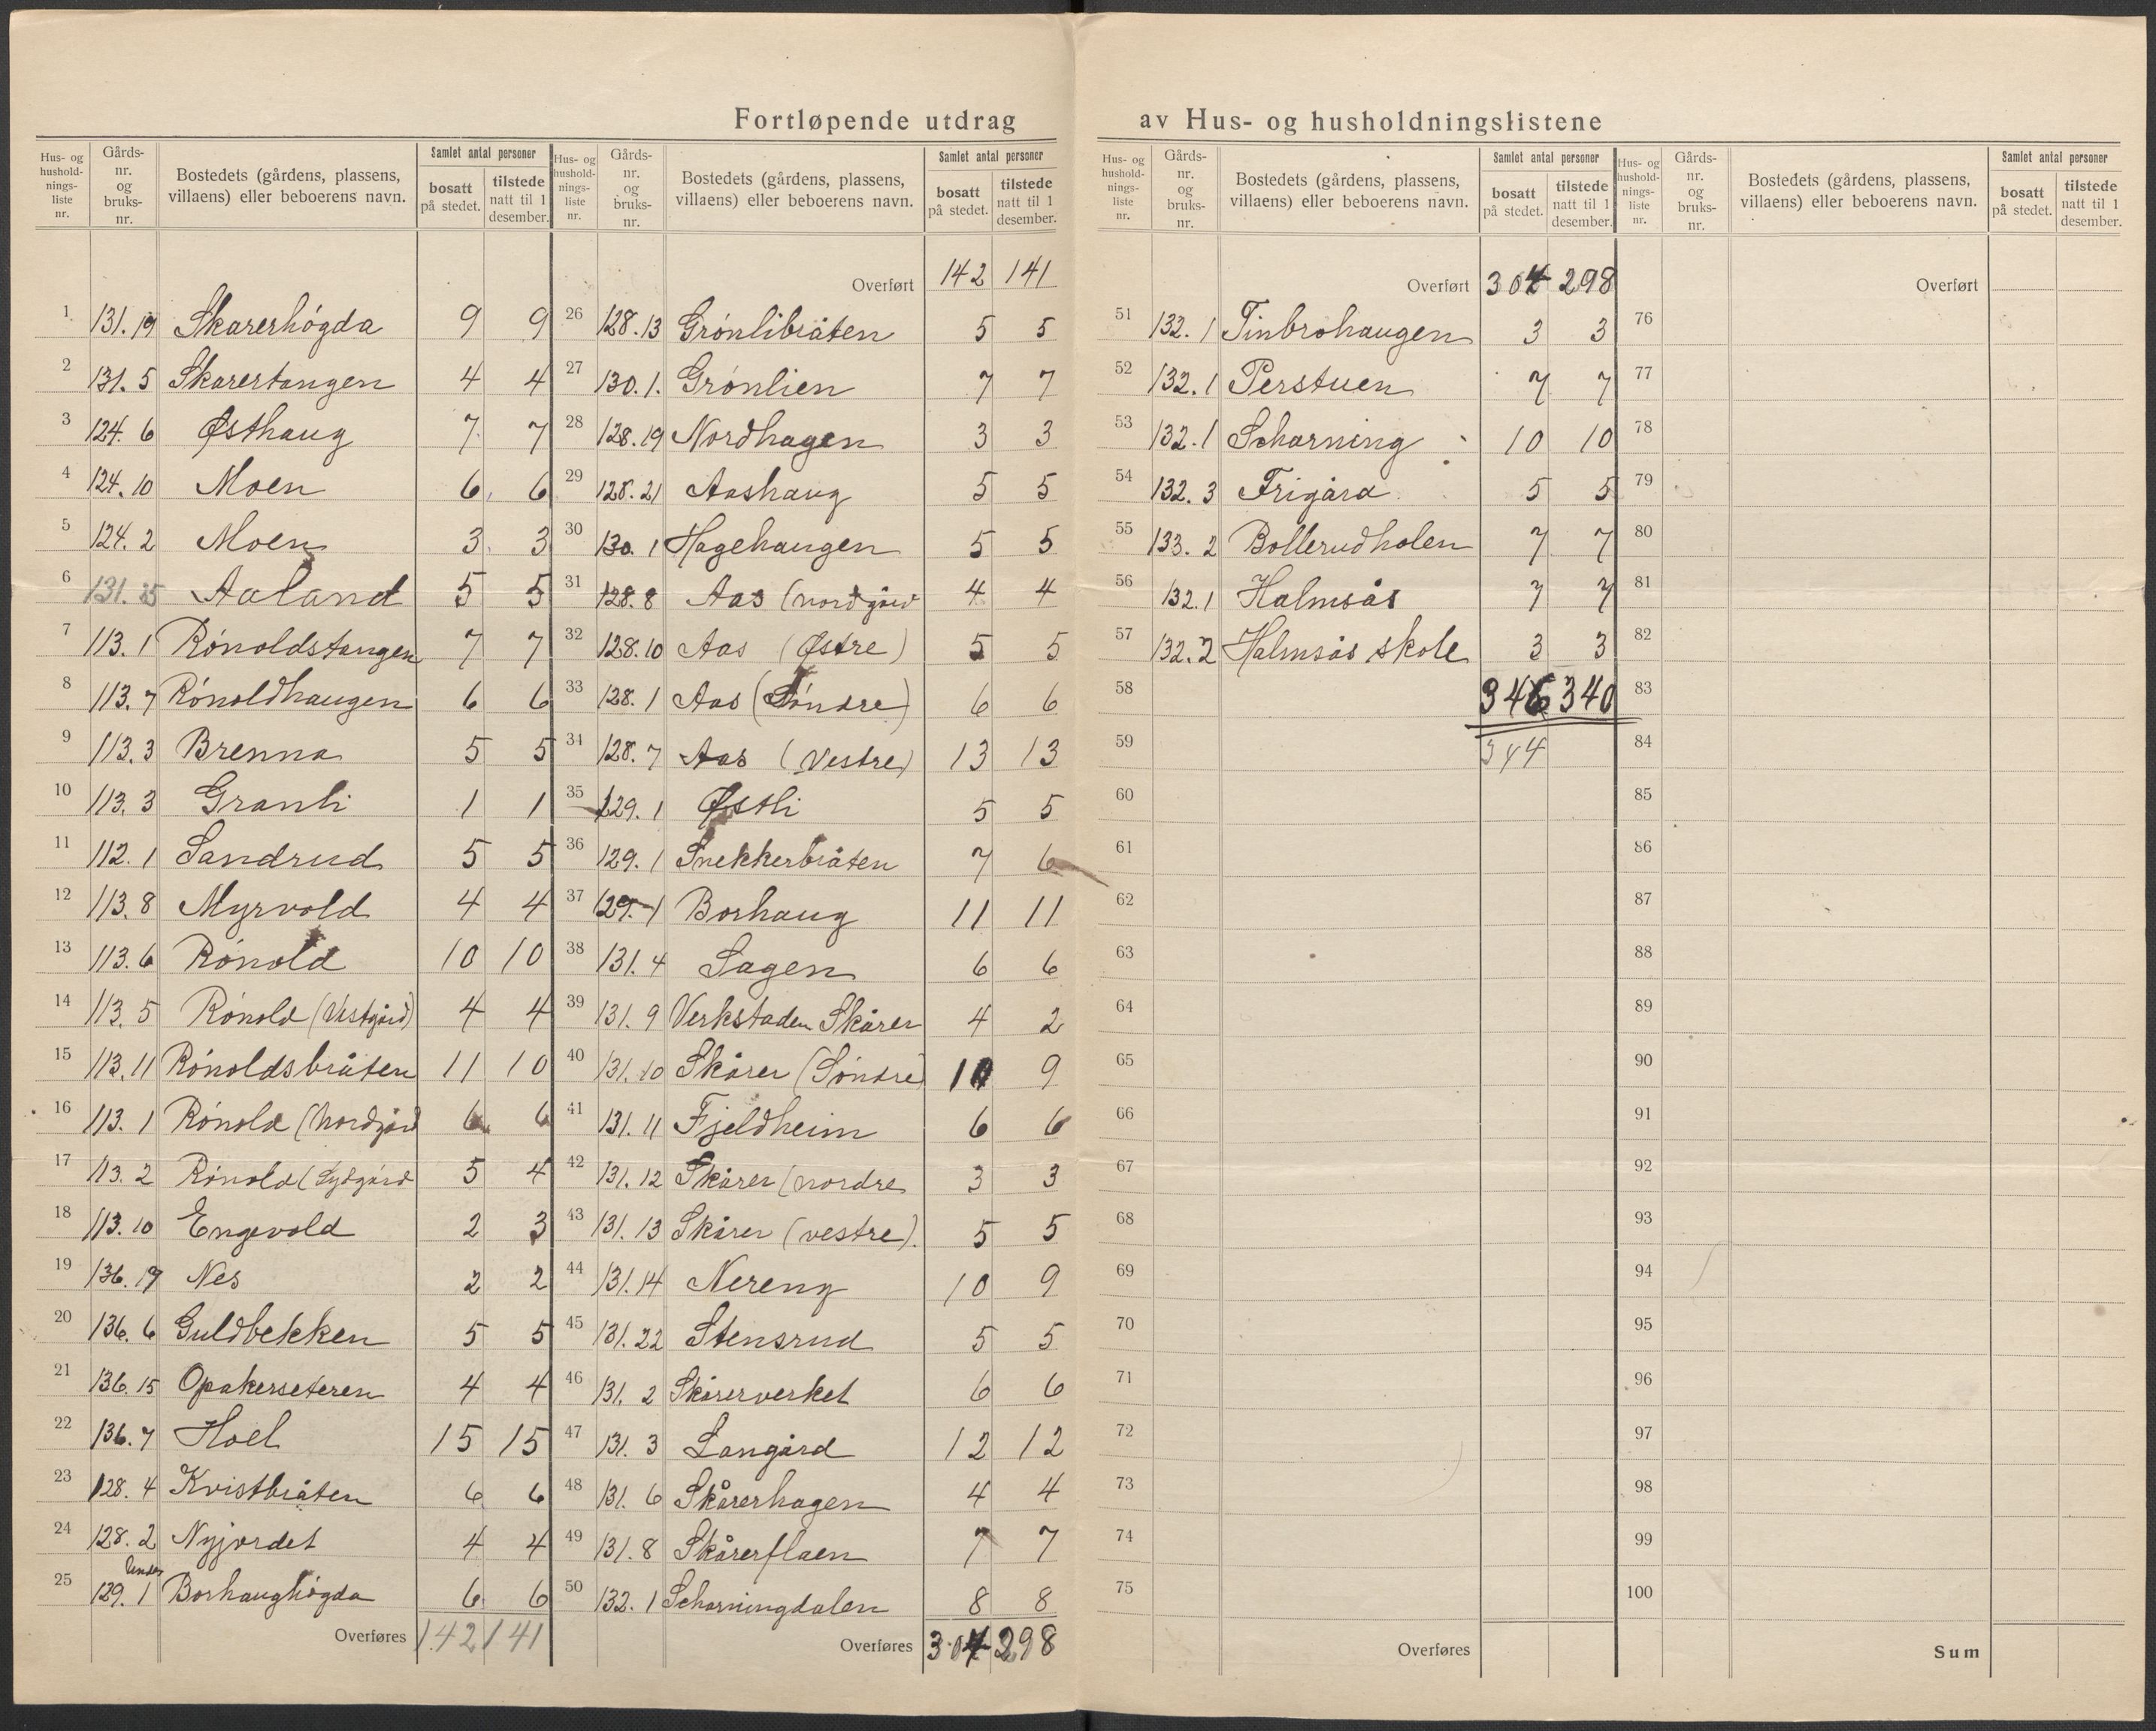 Fortløpende utdrag av Hus- og husholdningslistene
Hus- og hushold-nings-liste nr. Gårds-nr. og bruks-nr. Bostedets (gårdens, plassens, villaens) eller beboerens navn. Samlet antal personer bosatt på stedet. tilstede natt til 1 desember.
1 131.19 Skarerhögda 9 9
2 131.5 Skarertangen 4 4
3 124.6 Østhaug 7 7
4 124.10 Moen 6 6
5 124.2 Moen 3 3
6 131.15 Aaland 5 5
7 113.1 Rönoldstangen 7 7
8 113.7 Rönoldhaugen 6 6
9 113.3 Brenna 5 5
10 113.3 Granli 1 1
11 112.1 Sandrud 5 5
12 113.8 Myrvold 4 4
13 113.6 Rönold 10 10
14 113.5 Rönold (Vestgård) 4 4
15 113.11 Rönoldsbråten 11 10
16 113.1 Rönold (Nordgård 6 6
17 113.2 Rönold (Sydgård 5 4
18 113.10 Engevold 2 3
19 136.19 Nes 2 2
20 136.6 Guldbekken 5 5
21 136.15 Opakerseteren 4 4
22 136.7 Hoel 15 15
23 128.4 Kvistbråten 6 6
24 128.2 Nyjordet 4 4
Under
25 129.1 Borhaughögda 6 6
Overføres 142 141
Hus- og hushold-nings-liste nr. Gårds-nr. og bruks-nr. Bostedets (gårdens, plassens, villaens) eller beboerens navn. Samlet antal personer bosatt på stedet. tilstede natt til 1 desember.
Overført 142 141
26 128.13 Grönlibråten 5 5
27 130.1. Grönlien 7 7
28 128.19 Nordhagen 3 3
29 128.21 Aashaug 5 5
30 130.1 Hagehaugen 5 5
31 128.8 Aas (nordgård 4 4
32 128.10 Aas (Østre) 5 5
33 128.1 Aas (Söndre) 6 6
34 128.7 Aas (Vestre) 13 13
35 129.1 Østli 5 5
36 129.1 Snekkerbråten 7 6
37 129.1 Borhaug 11 11
38 131.4 Sagen 6 6
39 131.9 Verkstaden Skårer 4 2
40 131.10 Skårer (Söndre) 10 9
41 131.11 Fjeldheim 6 6
42 131.12 Skårer (nordre 3 3
43 131.13 Skårer (vestre). 5 5
44 131.14 Nereng 10 9
45 131.22 Stensrud 5 5
46 131.2 Skårerverket 6 6
47 131.3 Langård 12 12
48 131.6 Skårerhagen 4 4
49 131.8 Skårerflaen 7 7
50 132.1 Scharningdalen 8 8
Overføres 304 298
Hus- og hushold-nings-liste nr. Gårds-nr. og bruks-nr. Bostedets (gårdens, plassens, villaens) eller beboerens navn. Samlet antal personer bosatt på stedet. tilstede natt til 1 desember.
Overført 304 298
51 132.1 Tinbrohaugen 3 3
52 132.1 Perstuen 7 7
53 132.1 Scharning 10 10
54 132.3 Frigård 5 5
55 133.2 Bollerudholen 7 7
56 132.1 Halmsås 7 7
57 132.2 Halmsås skole 3 3
58 346 340
59 344
60
61
62
63
64
65
66
67
68
69
70
71
72
73
74
75
Overføres
Hus- og hushold-nings-liste nr. Gårds-nr. og bruks-nr. Bostedets (gårdens, plassens, villaens) eller beboerens navn. Samlet antal personer bosatt på stedet. tilstede natt til 1 desember.
Overført
76
77
78
79
80
81
82
83
84
85
86
87
88
89
90
91
92
93
94
95
96
97
98
99
100
Sum